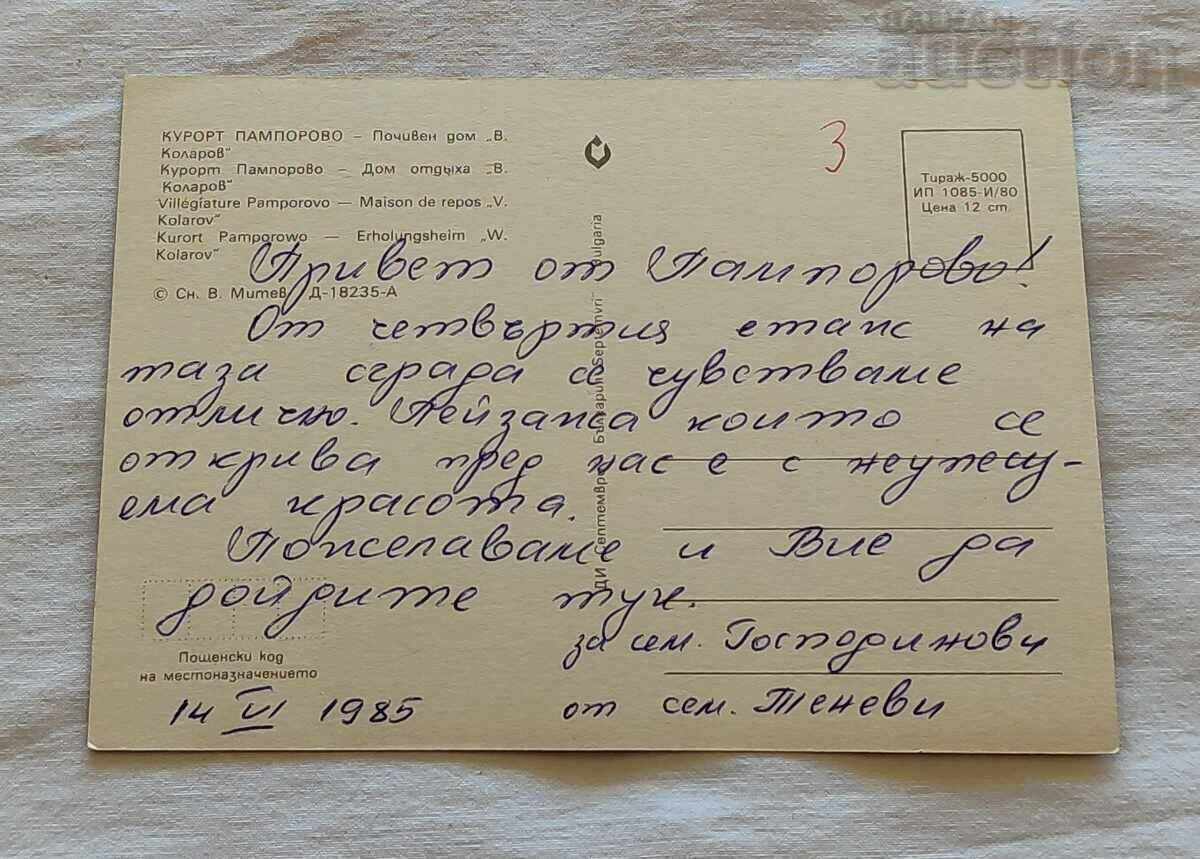 БАЛКАН
auction
КУРОРТ ПАМПОРОВО – Почивен дом „В.
Коларов"
Курорт Пампорово – Дом отдыха „В.
Коларов"
Villégiature Pamporovo — Maison de repos „V.
Kolarov"
Kurort Pamporowo — Erholungsheim „W.
Kolarov"
© Сн. В. Митев Д-18235-А
3
Тираж-5000
ИП 1085-И/80
Цена 12 ст.
ДИ Септември България Septemvri Bulgaria
Привет от Пампорово!
От четвъртия етапс на
таза сграда се чувстваме
отлично. Пейзажа които се
открива пред нас е с неужесу-
ема красота.
Пожелаваме и Вие да
дойдите тук.
за сем. Господинови
от сем. Теневи
14 VI 1985
Пощенски код
на местоназначението